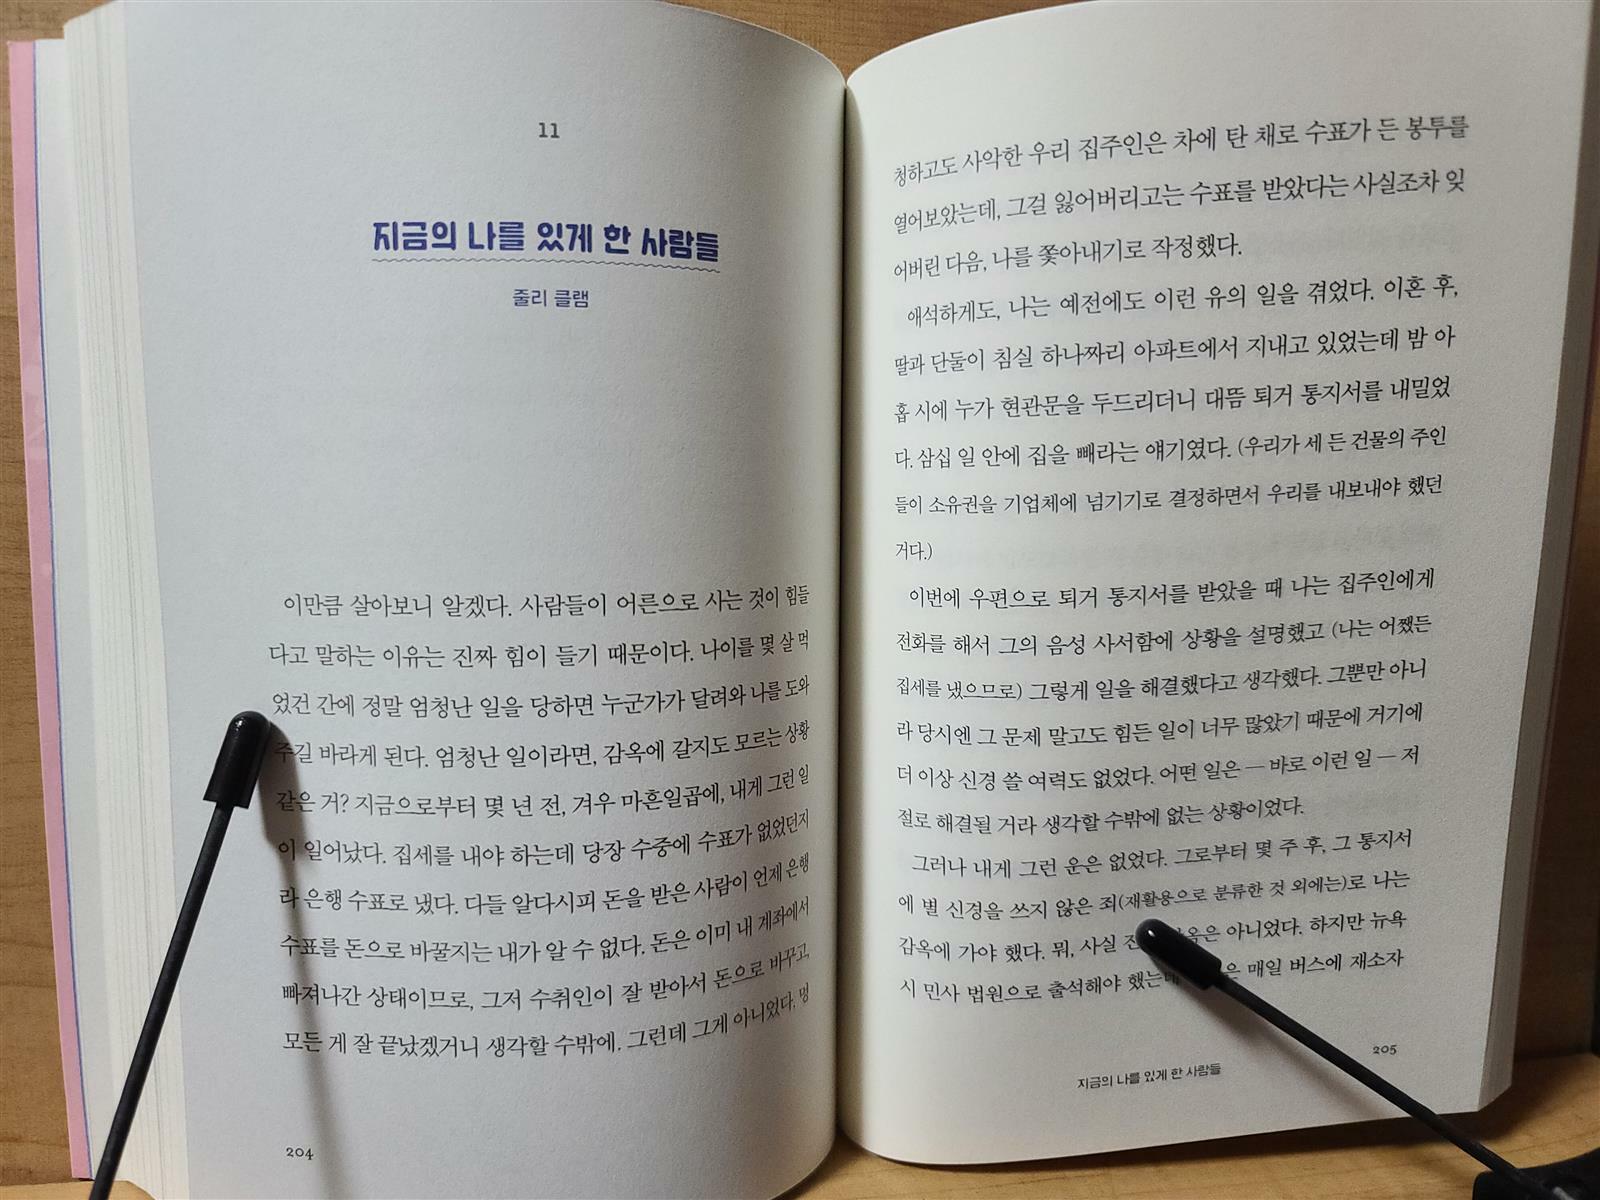 11
지금의 나를 있게 한 사람들
줄리 클램
이만큼 살아보니 알겠다. 사람들이 어른으로 사는 것이 힘들
다고 말하는 이유는 진짜 힘이 들기 때문이다. 나이를 몇 살 먹
었건 간에 정말 엄청난 일을 당하면 누군가가 달려와 나를 도와
주길 바라게 된다. 엄청난 일이라면, 감옥에 갈지도 모르는 상황
같은 거? 지금으로부터 몇 년 전, 겨우 마흔일곱에, 내게 그런 일
이 일어났다. 집세를 내야 하는데 당장 수중에 수표가 없었던지
라 은행 수표로 냈다. 다들 알다시피 돈을 받은 사람이 언제 은행
수표를 돈으로 바꿀지는 내가 알 수 없다. 돈은 이미 내 계좌에서
빠져나간 상태이므로, 그저 수취인이 잘 받아서 돈으로 바꾸고,
모든 게 잘 끝났겠거니 생각할 수밖에. 그런데 그게 아니었다. 멍
204
청하고도 사악한 우리 집주인은 차에 탄 채로 수표가 든 봉투를
열어보았는데, 그걸 잃어버리고는 수표를 받았다는 사실조차 잊
어버린 다음, 나를 쫓아내기로 작정했다.
애석하게도, 나는 예전에도 이런 유의 일을 겪었다. 이혼 후,
딸과 단둘이 침실 하나짜리 아파트에서 지내고 있었는데 밤 아
홉 시에 누가 현관문을 두드리더니 대뜸 퇴거 통지서를 내밀었
다. 삼십 일 안에 집을 빼라는 얘기였다. (우리가 세 든 건물의 주인
들이 소유권을 기업체에 넘기기로 결정하면서 우리를 내보내야 했던
거다.)
이번에 우편으로 퇴거 통지서를 받았을 때 나는 집주인에게
전화를 해서 그의 음성 사서함에 상황을 설명했고 (나는 어쨌든
집세를 냈으므로) 그렇게 일을 해결했다고 생각했다. 그뿐만 아니
라 당시엔 그 문제 말고도 힘든 일이 너무 많았기 때문에 거기에
더 이상 신경 쓸 여력도 없었다. 어떤 일은 — 바로 이런 일 — 저
절로 해결될 거라 생각할 수밖에 없는 상황이었다.
그러나 내게 그런 운은 없었다. 그로부터 몇 주 후, 그 통지서
에 별 신경을 쓰지 않은 죄(재활용으로 분류한 것 외에는)로 나는
감옥에 가야 했다. 뭐, 사실 아니었다. 하지만 뉴욕
시 민사 법원으로 출석해야 했는데 매일 버스에 재소자
205
지금의 나를 있게 한 사람들